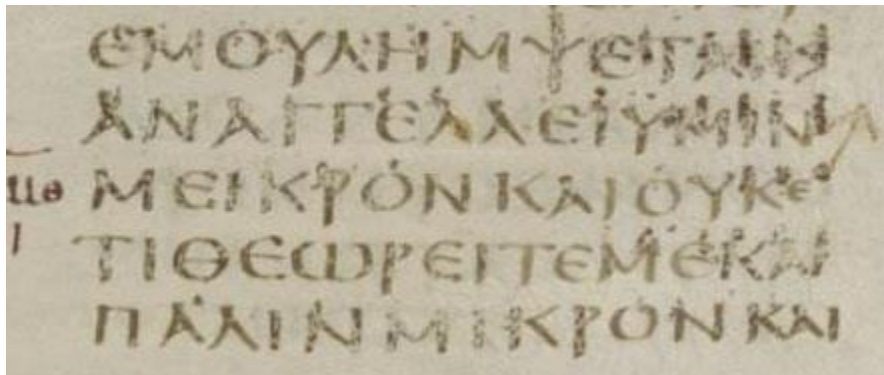 ΕΜΟΥΛΗΜΨΕΤΑΙΚΑΙ
ΑΝΑΓΓΕΛΛΕΙΥΜΙΝ
ΜΕΙΚΡΟΝΚΑΙΟΥΚΕ
ΤΙΘΕΩΡΕΙΤΕΜΕΚΑΙ
ΠΑΛΙΝΜΙΚΡΟΝΚΑΙ